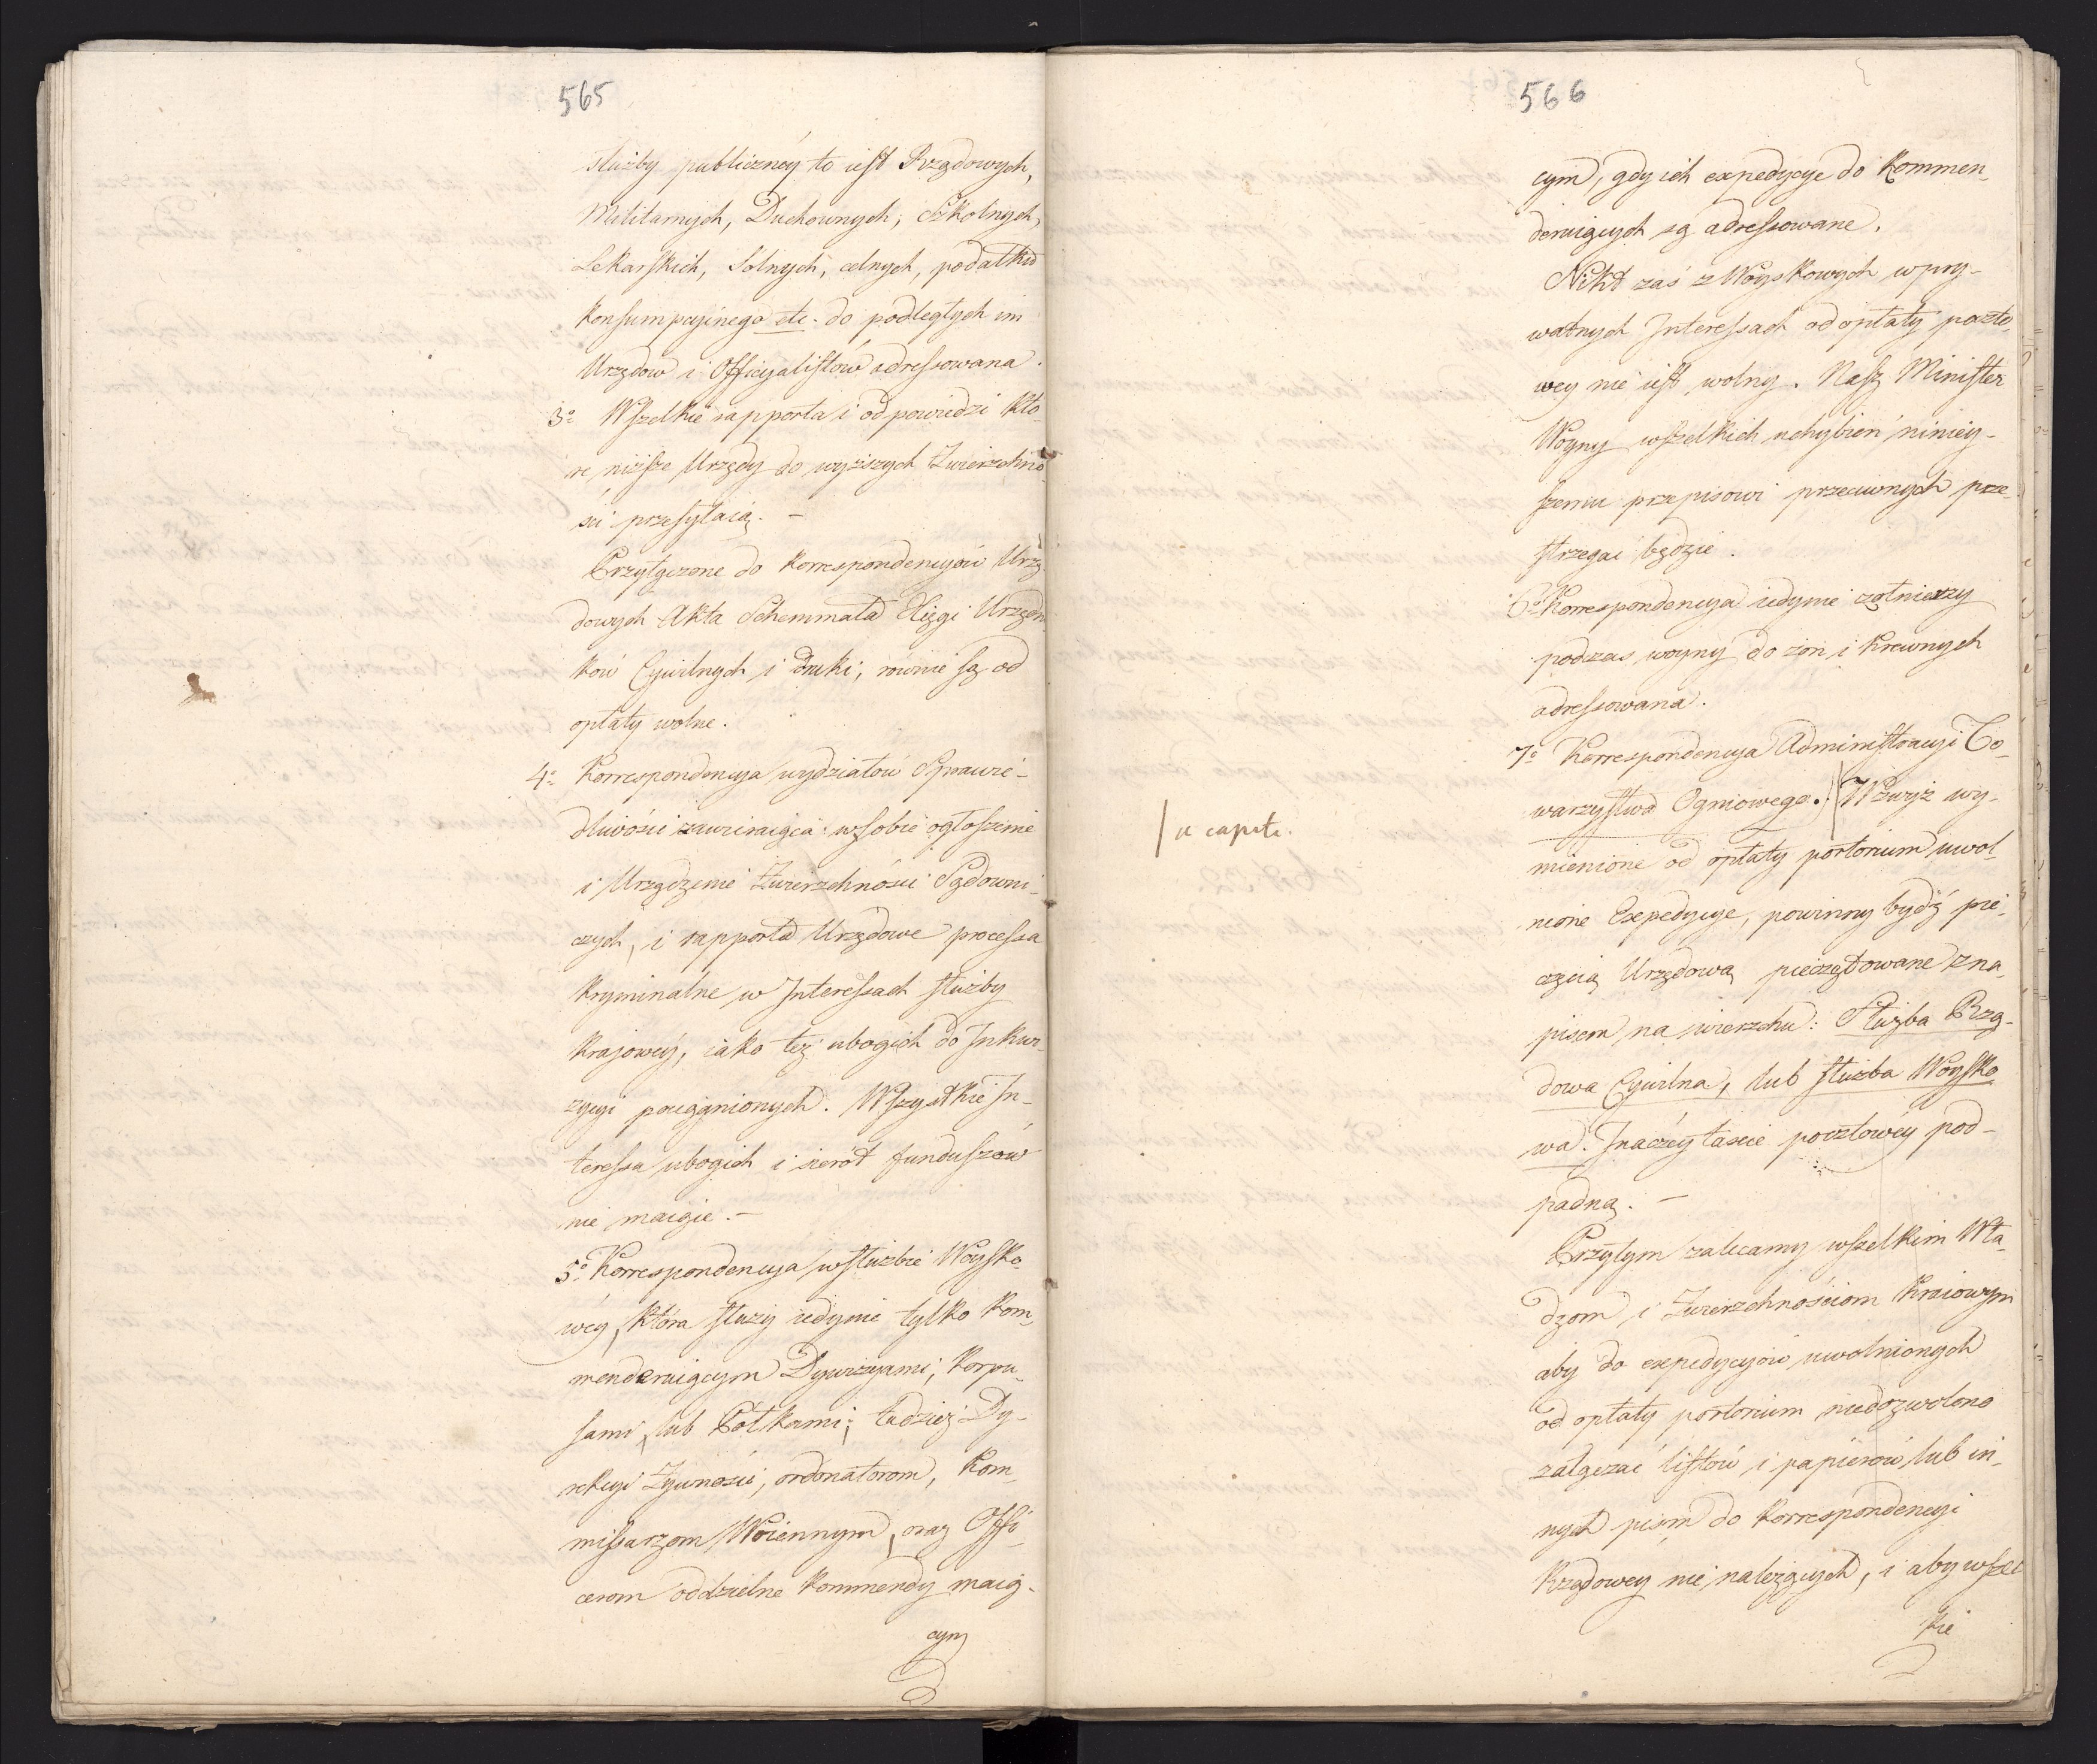 565
służby publiczney to iest Rządowych,
Militarnych, Duchownych, Szkolnych,
Lekarskich, Solnych, celnych, podatku
konsumpcyinego etc. do podległych im
Urzędow i Officyalistów adressowana.
3o Wszelkie rapporta i odpowiedzi któ-
re niższe Urzędy do wyższych Zwierzchno-
ści przesyłaią. —
Przyłączone do korrespondencyów Urzę-
dowych Akta Schemmata Xięgi Urzędni-
ków Cywilnych i druki, równie są od
opłaty wolne.
4o Korrespondencya wydziałów Sprawie-
dliwości zawieraiąca w sobie ogłoszenie
i Urządzenie Zwierzchności Sądowni-
czych, i rapporta Urzędowe processa
kryminalne w Interessach służby
krajowey, iako też ubogich do Inkwi-
zycyi pociągnionych. Wszystkie In-
teressa ubogich i sierót funduszów
nie maiące. —
5o Korrespondencya w służbie Woysko-
wéy, która służy iedynie tylko kom-
menderuiącym Dywizyami, Korpu-
sami, lub Półkami, tudzież Dy-
rekcyi Żywności, ordonatorom, Kom-
missarzom Woiennym, oraz Offi-
cerom oddzielne kommendy maią-
cym
566
cym, gdy ich expedycye do kommen-
deruiących są adressowane.
Nikt zaś z Woyskowych w pry-
watnych Interessach od opłaty poczto-
wey nie iest wolny. Nasz Minister
Woyny wszelkich uchybień niniey-
szemu przepisowi przeciwnych prze-
strzegać będzie.
6o Korrespondencya iedynie żołnierzy
podczas woyny do żon i krewnych
adressowana.
7o Korrespondencya Administracyi To-
warzystwa Ogniowego. | Wzwyż wy-
| a capite.
mienione od opłaty portorium uwol-
nione Expedycye, powinny bydź pie-
częcią Urzędową pieczętowane z na-
pisem na wierzchu: Służba Rzą-
dowa Cywilna, lub służba Woysko-
wa. Inaczéy taxie pocztowéy pod-
padną. —
Przytym zalecamy wszelkim Wła-
dzom, i Zwierzchnościom Kraiowym
aby do expedycyów uwolnionych
od opłaty portorium niedozwolono
załączać listów, i papierów lub in-
nych pism do korrespondencyi
Rządowey nie należących, i aby wszel-
kie